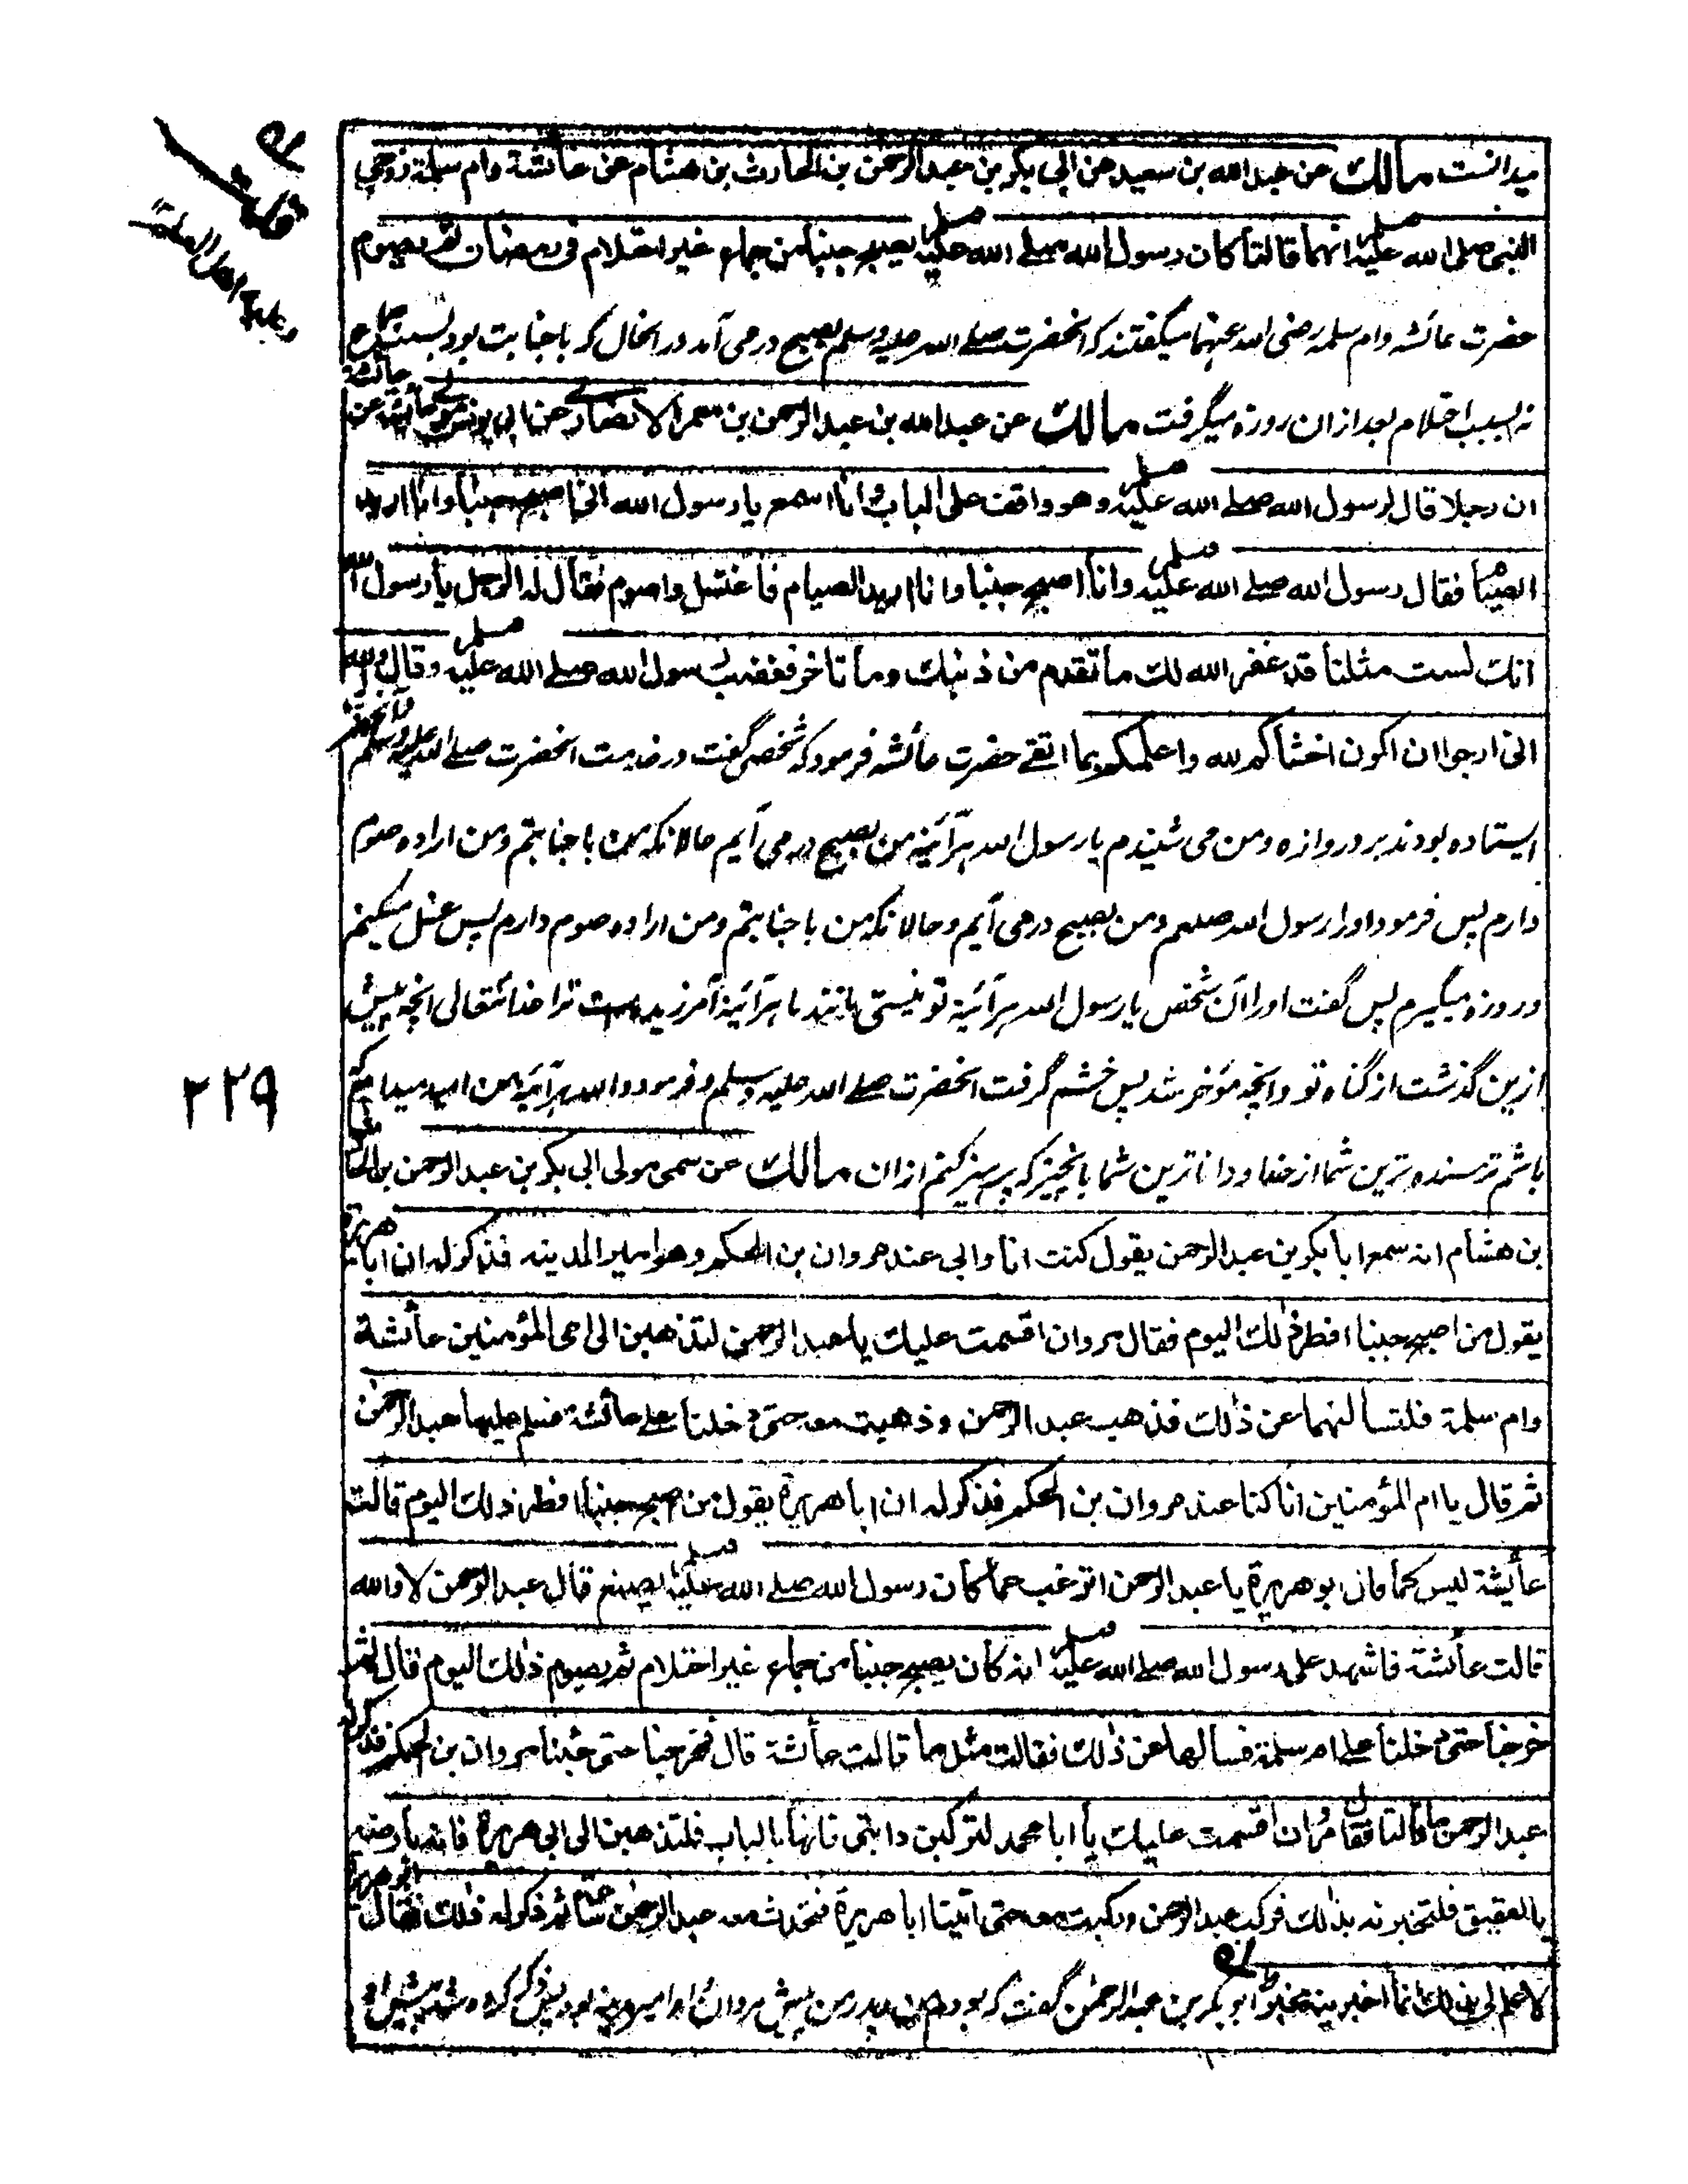 میدانست مالك عن عبد الله بن سعيد عن ابی بکر بن عبد الرحمن بن الحارث بن هشام عن عائشة وام سلمة زوجي
النبی صلی الله علیه وسلم انهما قالتا کان رسول الله صلے الله علیه وسلم یصبح جنبا من جماع غیر احتلام فی رمضان ثم یصوم
حضرت عائشه وام سلمه رضی الله عنهما میگفتند که آنحضرت صلے الله علیه وسلم بصبح درمی آمد در انحال که باجنابت بود بسبب جماع
نه بسبب احتلام بعد ازان روزه میگرفت مالك عن عبد الله بن عبد الرحمن بن معمر الانصاری عن ابی یونس مولی عائشة عن عائشة
ان رجلا قال لرسول الله صلے الله علیه وسلم وهو واقف علی الباب وانا اسمع یا رسول الله انی اصبح جنبا وانا ارید
الصیام فقال رسول الله صلے الله علیه وسلم وانا اصبح جنبا وانا ارید الصیام فاغتسل واصوم فقال له الرجل یا رسول الله
انك لست مثلنا قد غفر الله لك ما تقدم من ذنبك وما تاخر فغضب رسول الله صلے الله علیه وسلم وقال والله
انی ارجو ان اکون اخشاکم لله واعلمکم بما اتقے حضرت عائشه فرمود که شخصی گفت در خدمت آنحضرت صلے الله علیه وسلم وآنحضرت
ایستاده بودند بر دروازه ومن می شنیدم یا رسول الله هرآئینه من بصبح درمی آیم حالانکه من با جنابتم ومن اراده صوم
دارم پس فرمود اورا رسول الله صلعم ومن بصبح درمی آیم وحالانکه من با جنابتم ومن اراده صوم دارم پس غسل میکنم
وروزه میگیرم پس گفت اورا آن شخص یا رسول الله هرآئینه تو نیستی مانند ما هرآئینه آمرزیده است ترا خدائتعالی آنچه پیش
ازین گذشت از گناه تو وآنچه مؤخر شد پس خشم گرفت آنحضرت صلے الله علیه وسلم وفرمود والله هرآئینه من امید میدارم که
باشم ترسنده ترین شما از خدا ودانا ترین شما بآنچیز که پرهیز کنم ازان مالك عن سمی مولی ابی بکر بن عبد الرحمن بن الحارث
بن هشام انه سمع ابا بکر بن عبد الرحمن یقول کنت انا وابی عند مروان بن الحکم وهو امیر المدینه فذکر له ان ابا هریرة
یقول من اصبح جنبا افطر ذلك الیوم فقال مروان اقسمت علیك یا عبد الرحمن لتذهبن الی امی المؤمنین عائشة
وام سلمة فلتسألنهما عن ذلك فذهب عبد الرحمن وذهبت معه حتی دخلنا علے عائشة فسلم علیها عبد الرحمن
ثم قال یا ام المؤمنین انا کنا عند مروان بن الحکم فذکر له ان ابا هریرة یقول من اصبح جنبا افطر ذلك الیوم قالت
عائشة لیس کما قال ابو هریرة یا عبد الرحمن اترغب عما کان رسول الله صلے الله علیه وسلم یصنع قال عبد الرحمن لا والله
قالت عائشة فاشهد علی رسول الله صلے الله علیه وسلم انه کان یصبح جنبا من جماع غیر احتلام ثم یصوم ذلك الیوم قال ثم
خرجنا حتی دخلنا علے ام سلمة فسألها عن ذلك فقالت مثل ما قالت عائشة قال فخرجنا حتی جئنا مروان بن الحکم فذکر له
عبد الرحمن ما قالتا فقال مروان اقسمت علیك یا ابا محمد لترکبن دابتی فانها بالباب فلتذهبن الی ابی هریرة فانه بارضه
بالعقیق فلتخبرنه بذلك فرکب عبد الرحمن ورکبت معه حتی اتینا ابا هریرة فتحدث معه عبد الرحمن ساعة ثم ذکر له ذلك فقال ابو هریرة
لا علم لی بذلك انما اخبرنیه مخبر ابو بکر بن عبد الرحمن گفت که بودم من وپدر من پیش مروان واو امیر مدینه بود پس ذکر کرده شد پیش او
۲۲۹